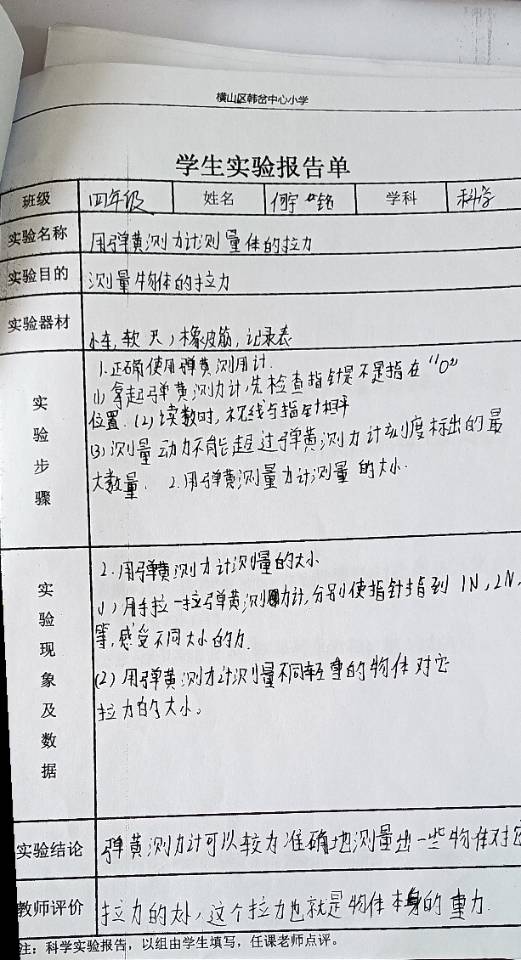 横山区韩岔中心小学
学生实验报告单
班级 四年级 姓名 学科 科学
实验名称 用弹黄测力计测量体的拉力
实验目的 测量物体的拉力
实验器材 小车,软尺,橡皮筋,记录表
实验步骤
1.正确使用弹黄测用计.
(1)拿起弹黄测力计,先检查指针是不是指在"0"
位置.(2)读数时,视线与指针相平
(3)测量动力不能超过弹黄测力计刻度标出的最
大数量. 2.用弹黄测量力计测量的大小.
实验现象及数据
2.用弹黄测力计测量的大小
(1)用手拉一拉弹黄测力计,分别使指针指到1N,2N,
等,感受不同大小的力.
(2)用弹黄测力计测量不同轻重的物体对它
拉力的大小。
实验结论 弹黄测力计可以较为准确地测量出一些物体对它
教师评价 拉力的大小,这个拉力也就是物体本身的重力.
注：科学实验报告，以组由学生填写，任课老师点评。